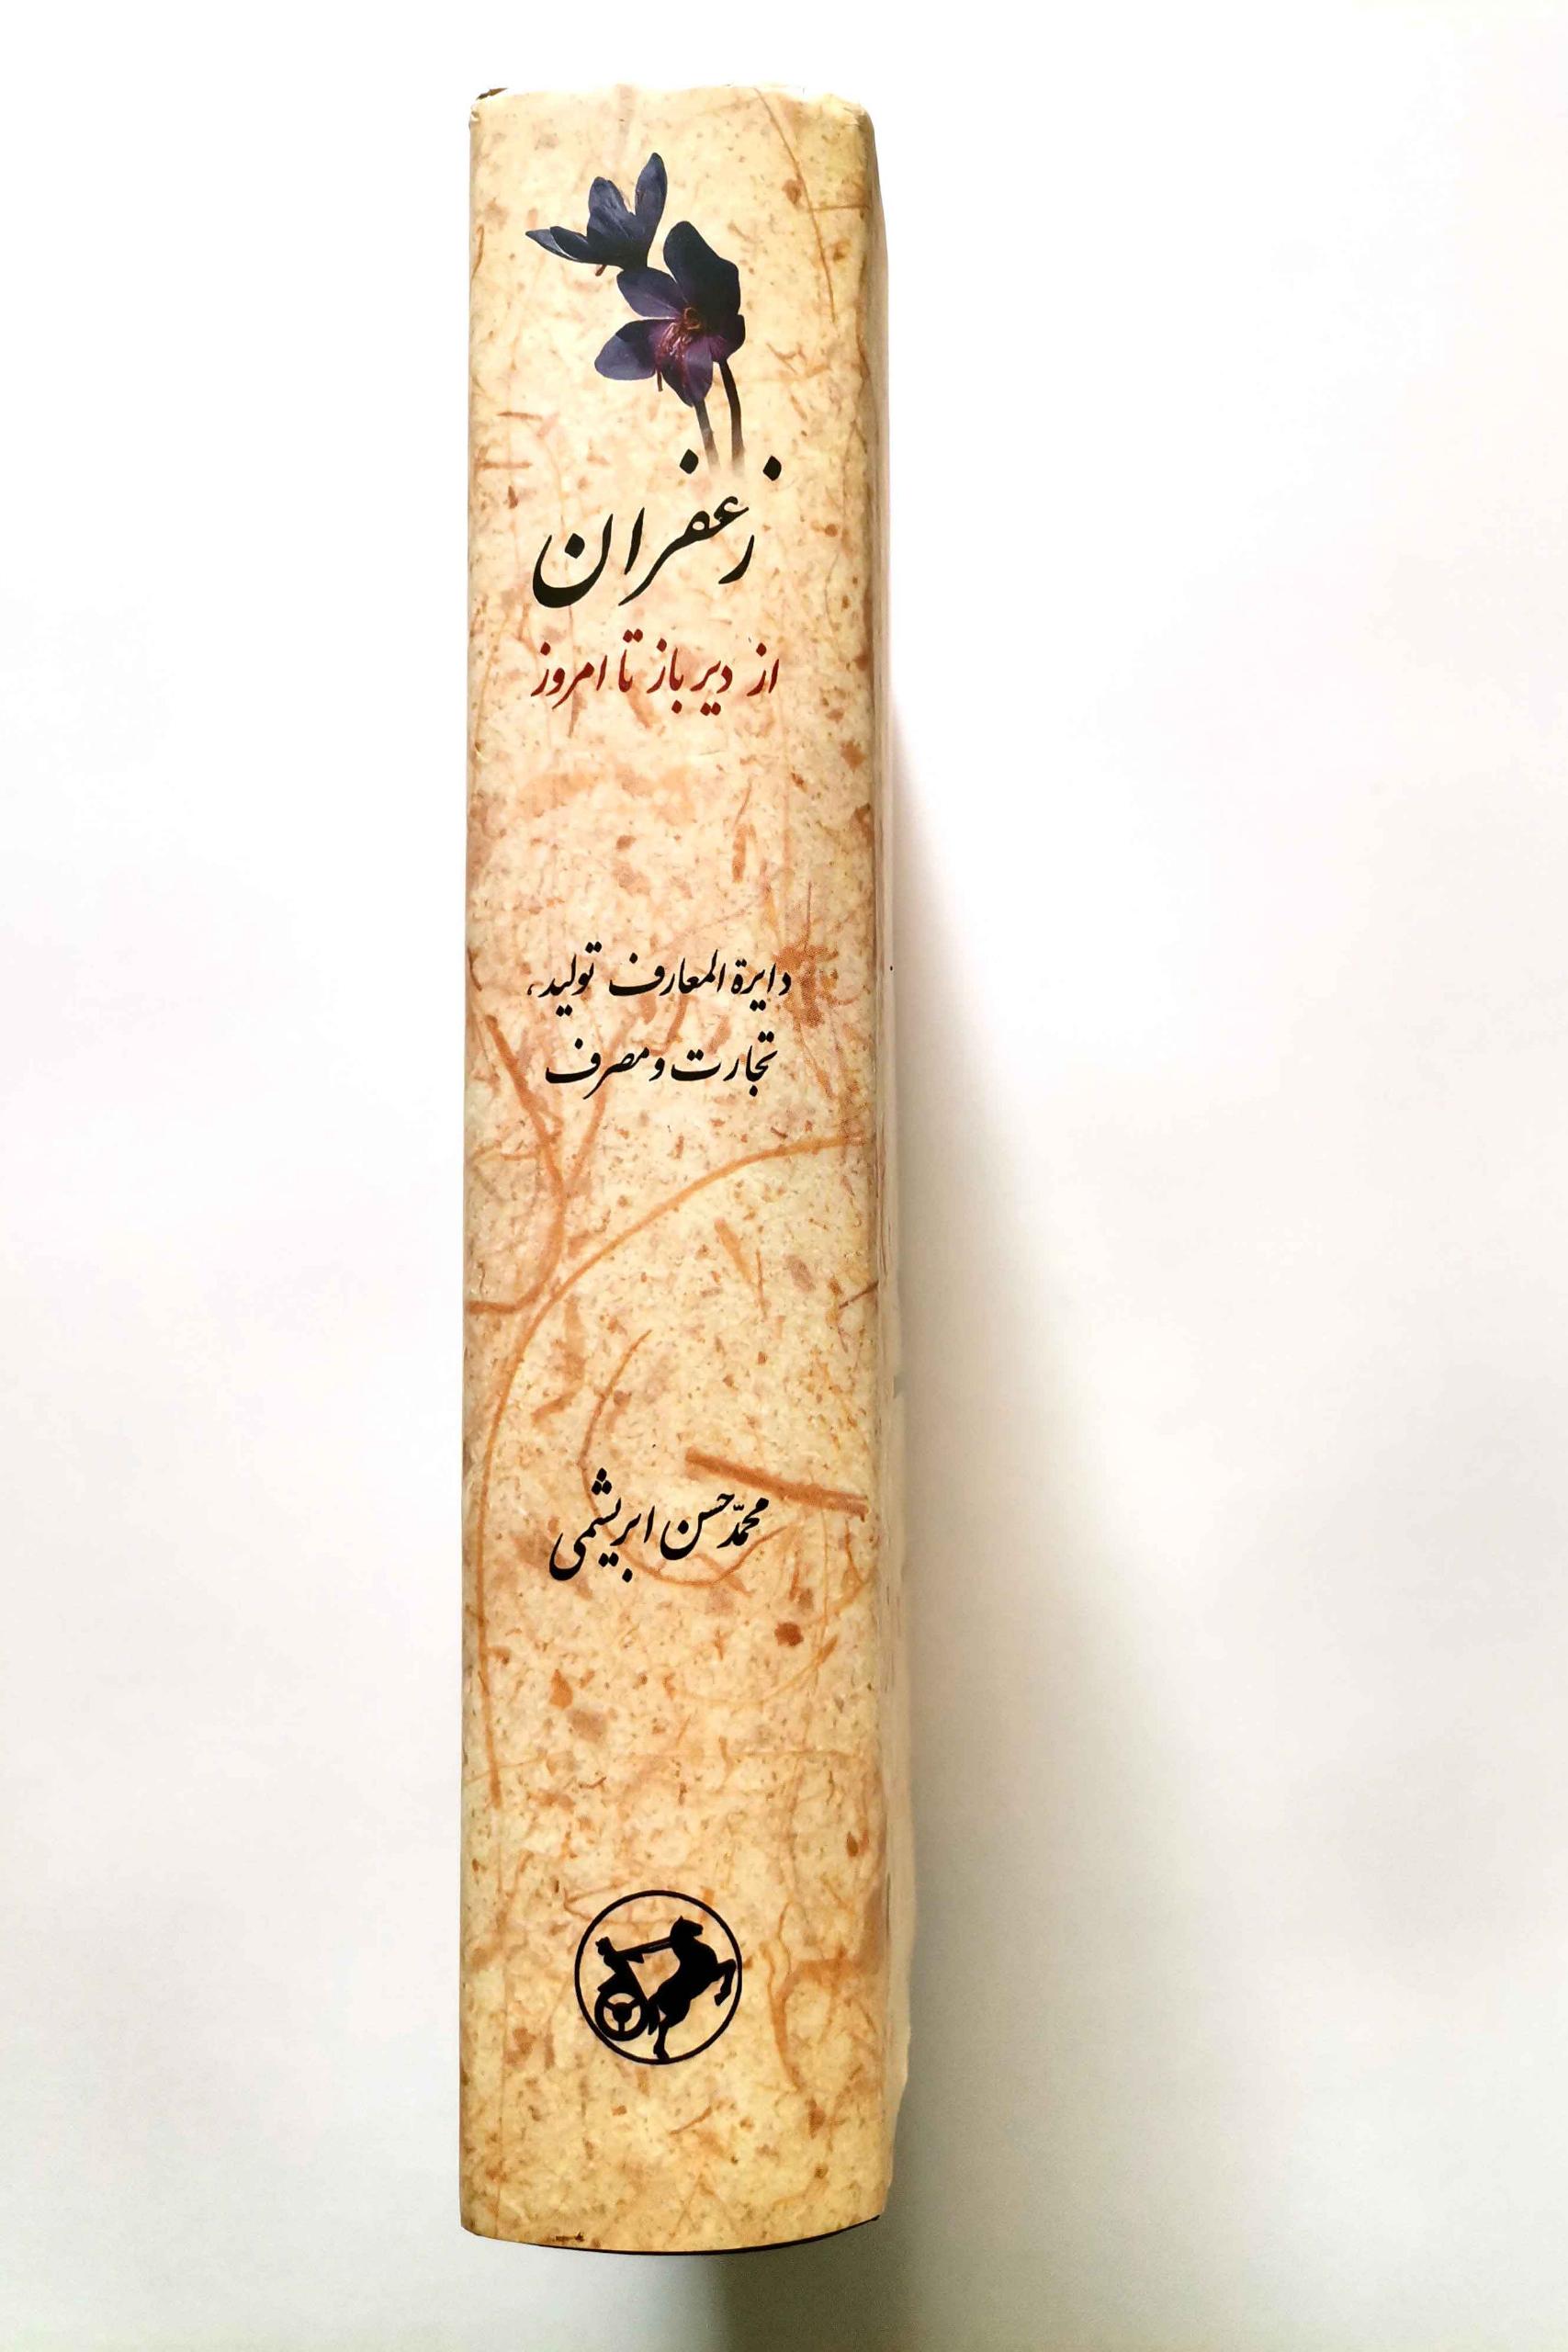 زعفران
از دیرباز تا امروز
دایرة المعارف تولید،
تجارت و مصرف
محمّدحسن ابریشمی